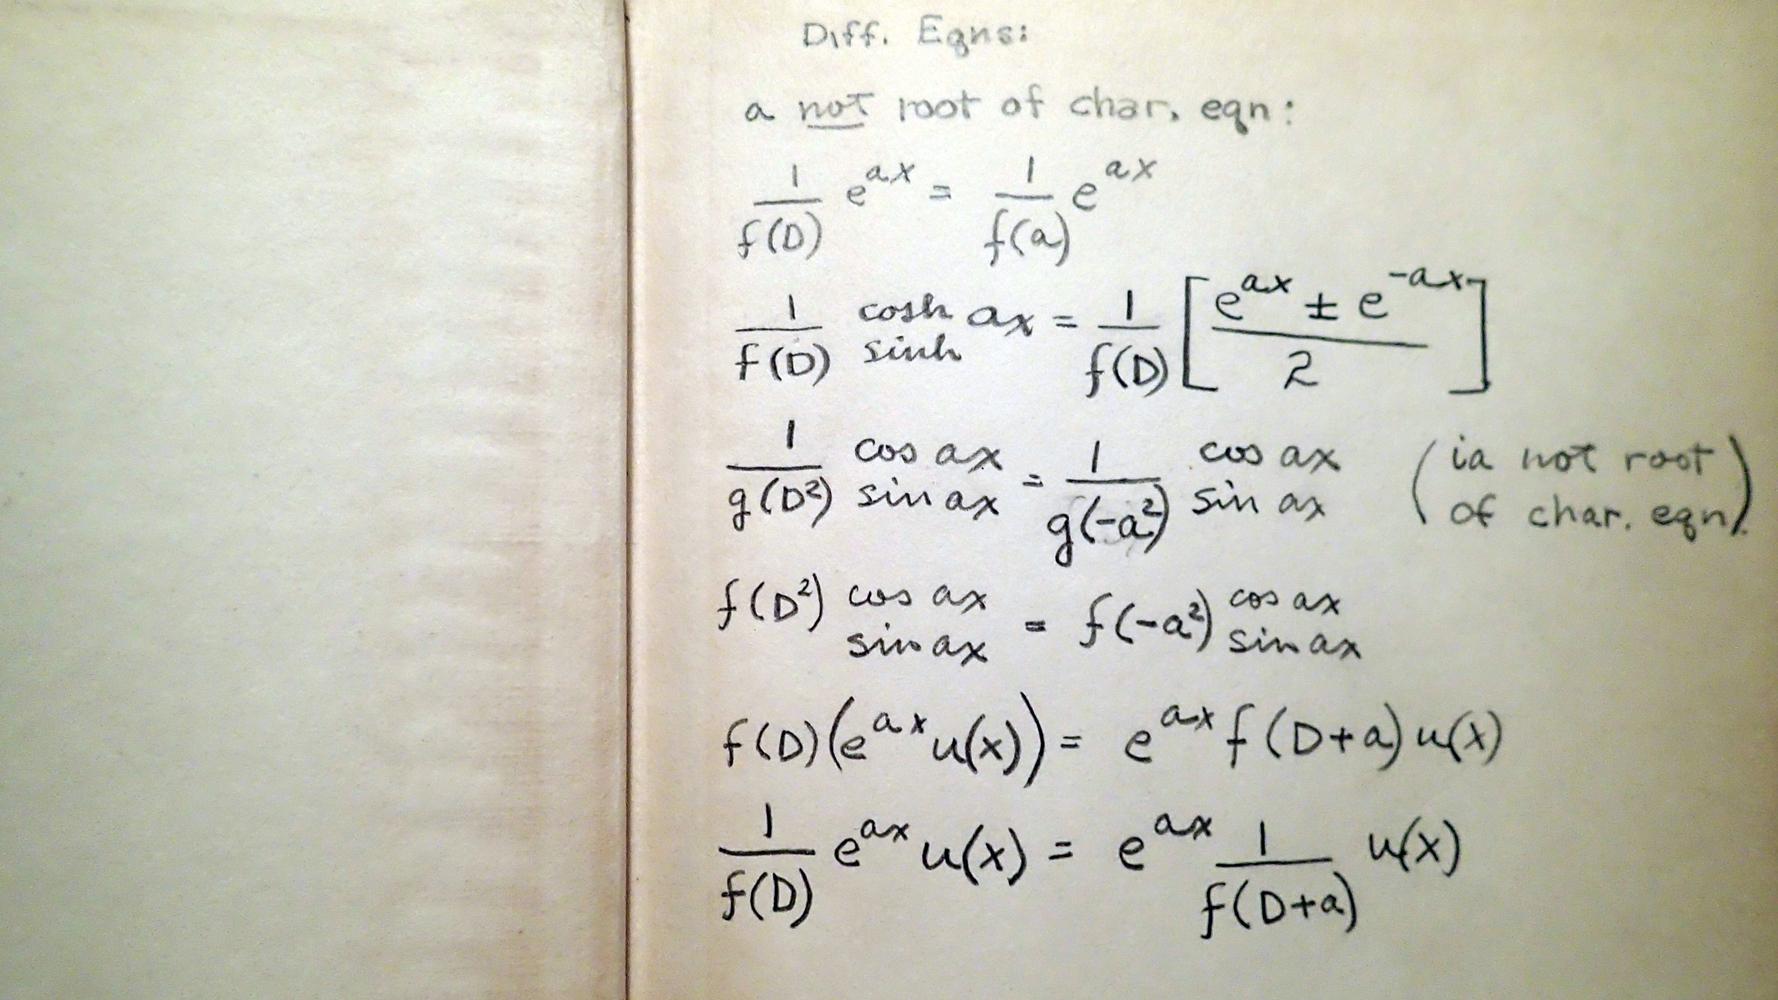 Diff. Eqns:
a not root of char. eqn:
1/f(D) e^{ax} = 1/f(a) e^{ax}
1/f(D) cosh sinh ax = 1/f(D) [ (e^{ax} ± e^{-ax})/2 ]
1/g(D²) cos ax sin ax = 1/g(-a²) cos ax sin ax (ia not root of char. eqn.)
f(D²) cos ax sin ax = f(-a²) cos ax sin ax
f(D)(e^{ax} u(x)) = e^{ax} f(D+a) u(x)
1/f(D) e^{ax} u(x) = e^{ax} 1/f(D+a) u(x)